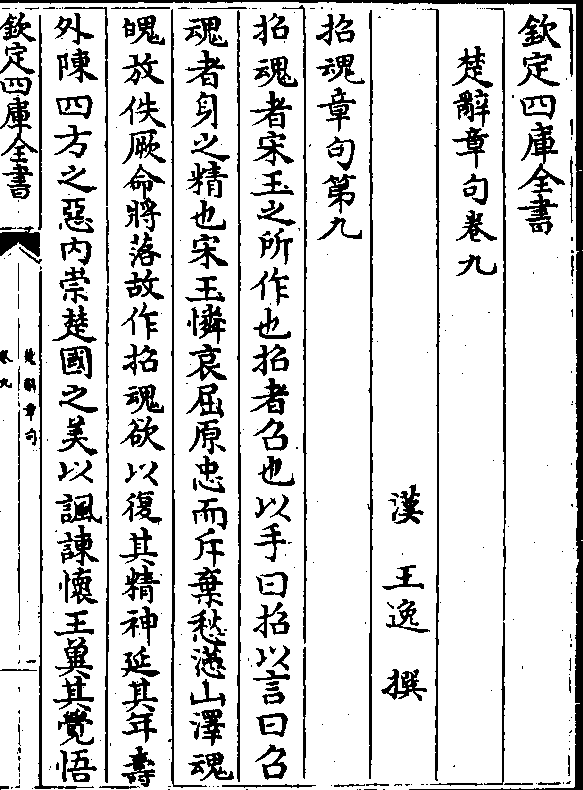 欽定四庫全書
楚辭章句卷九
漢 王逸 撰
招魂章句第九
招魂者宋玉之所作也招者召也以手曰招以言曰召
魂者身之精也宋玉憐哀屈原忠而斥棄愁懣山澤魂
魄放佚厥命將落故作招魂欲以復其精神延其年壽
外陳四方之惡内崇楚國之美以諷諫懷王冀其覺悟
欽定四庫全書
楚辭章句
卷九
一